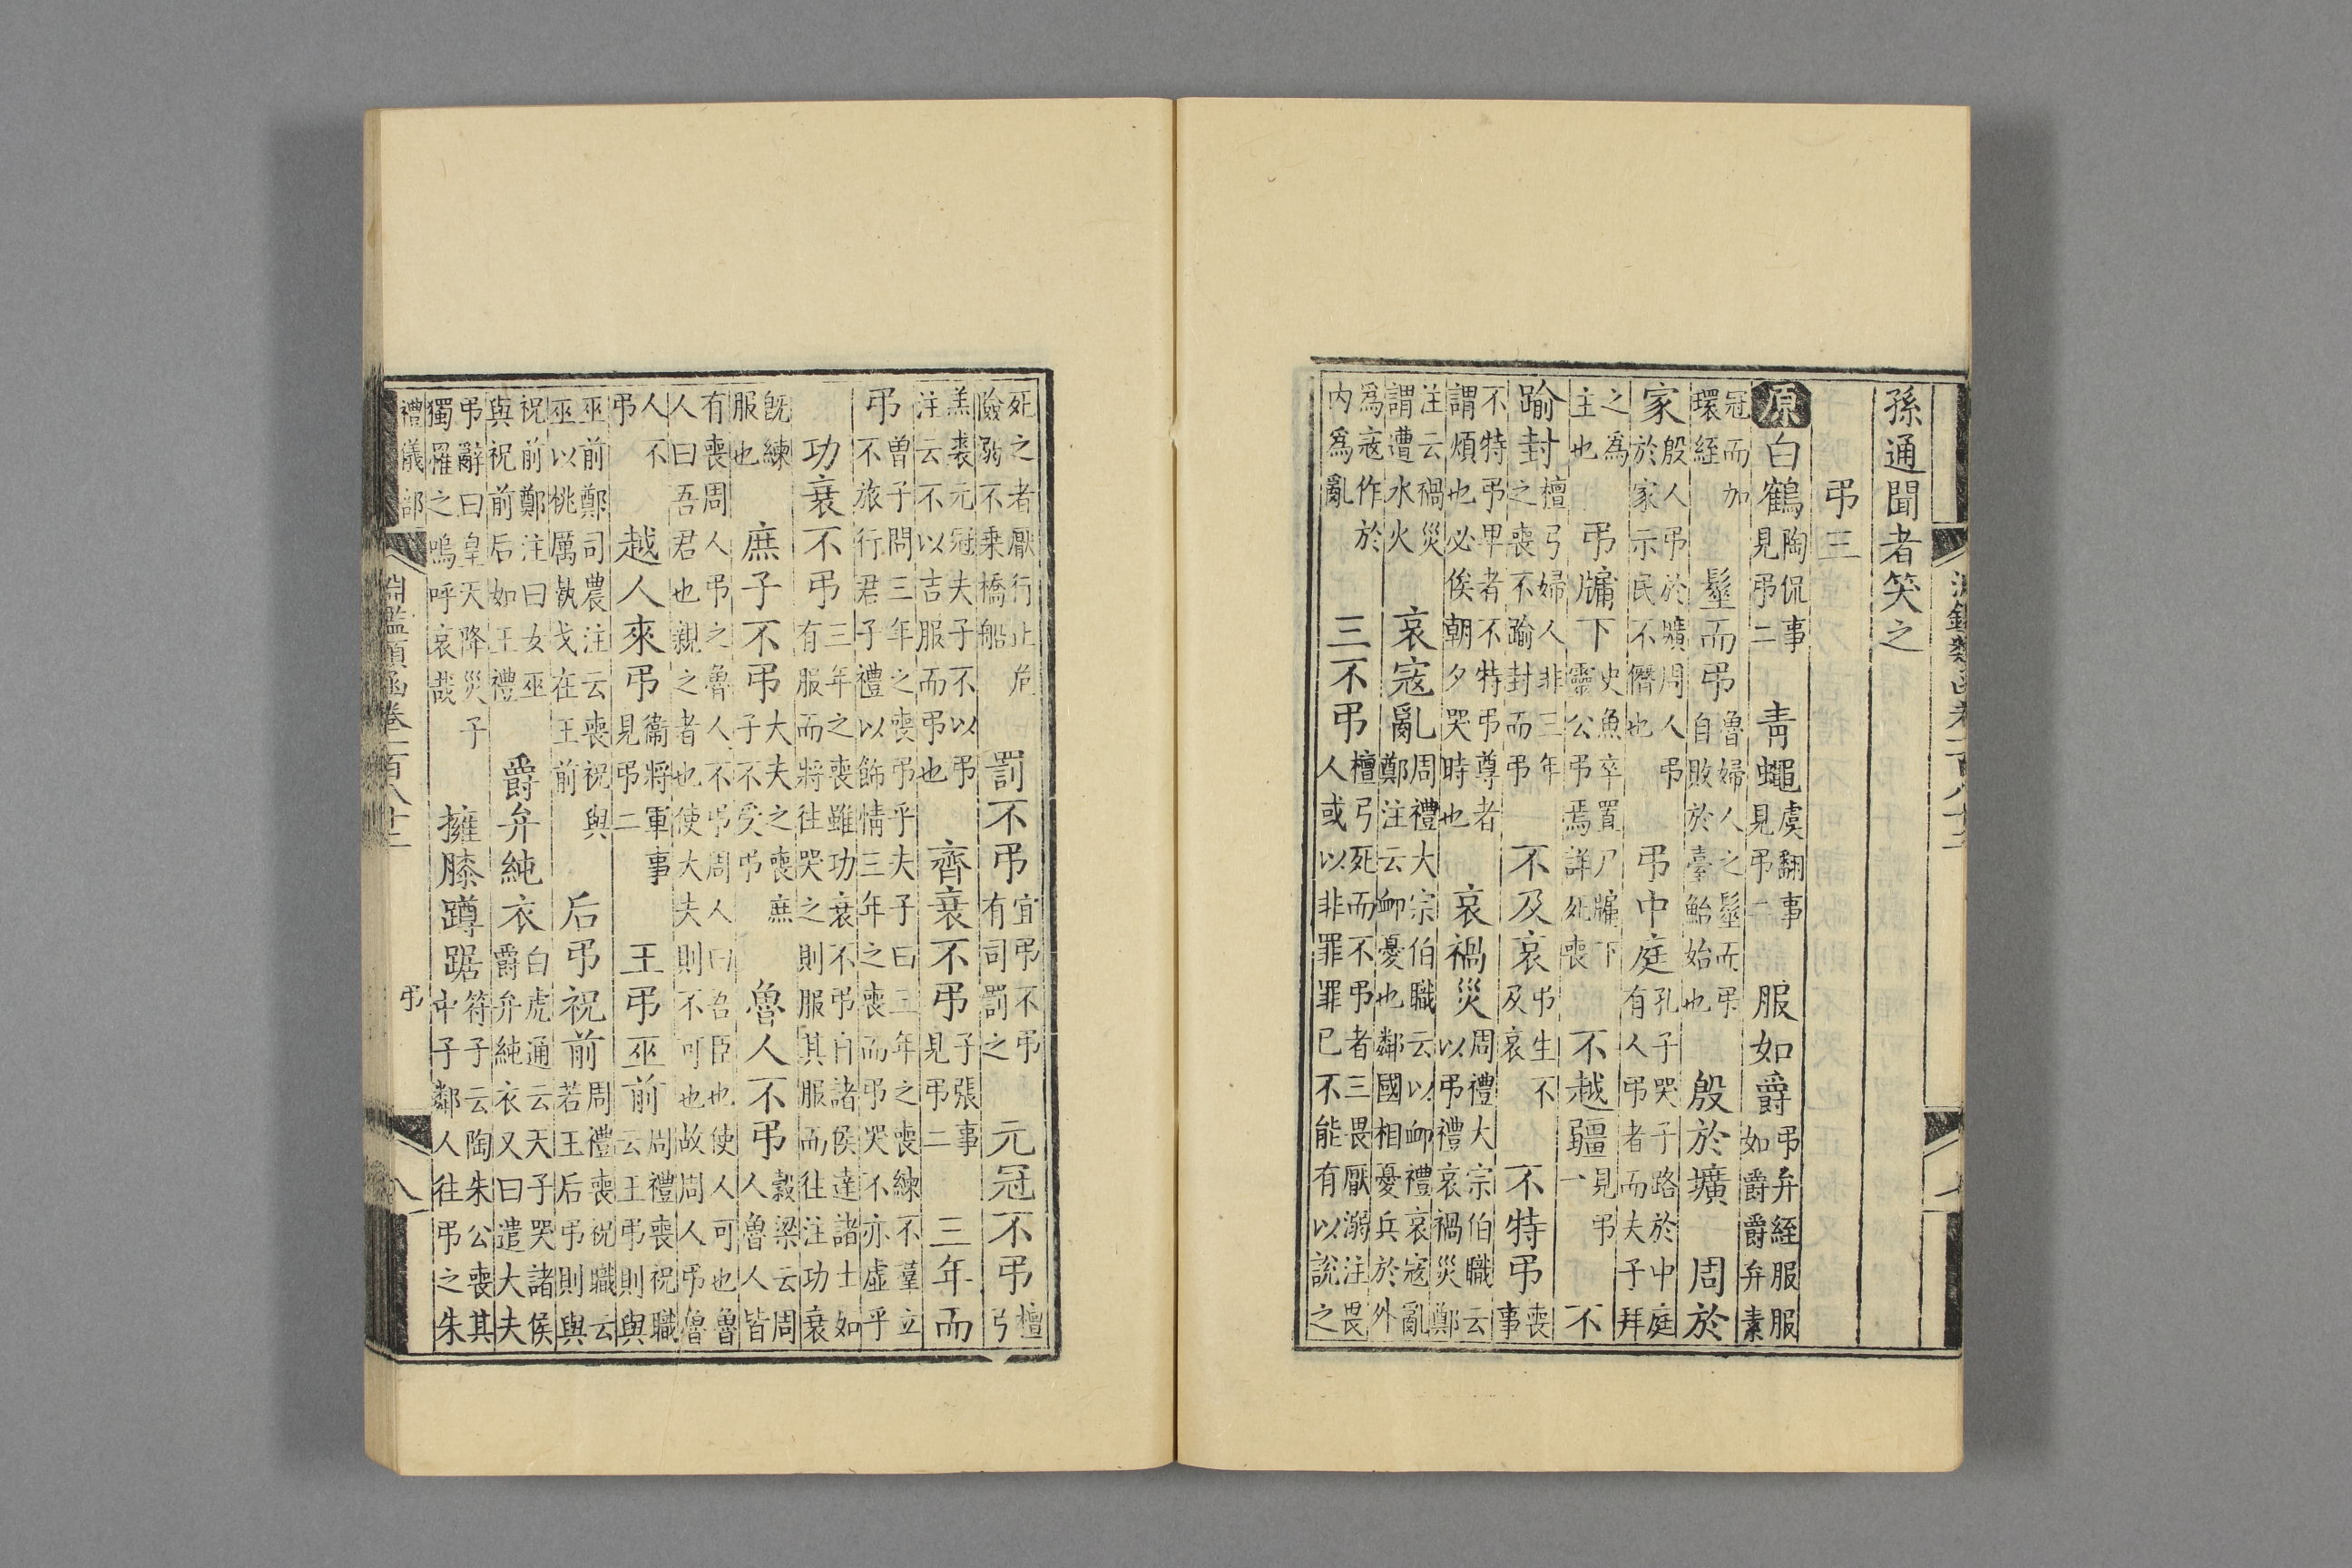 孫通聞者笑之
弔三
原白鶴陶侃事見弔二 青蠅虞翻事見弔二 服如爵弔弁絰服服如爵爵弁素
冠而加環絰 髽而弔魯婦人之髽而弔自敗於臺鮐始也 殷於壙 周於
家殷人弔於壙周人弔於家示民不僭也 弔中庭孔子哭子路於中庭有人弔者而夫子拜
之為主也 弔牖下史魚卒置尸牖下靈公弔焉詳死喪 不越疆見弔一 不
踰封檀弓婦人非三年之喪不踰封而弔 不及哀弔生不及哀 不特弔喪事
不特弔卑者不特弔尊者謂煩也必俟朝夕哭時也 哀禍災周禮大宗伯職云以弔禮哀禍災鄭
注云禍災謂遭水火 哀寇亂周禮大宗伯職云以䘏禮哀寇亂鄭注云䘏憂也鄰國相憂兵於外
為寇作於內為亂 三不弔檀弓死而不弔者三畏厭溺注畏人或以非罪罪已不能有以說之
死之者厭行止危險溺不乘橋船 罰不弔宜弔不弔有司罰之 元冠不弔檀弓
羔裘元冠夫子不以弔注云不以吉服而弔也 齊衰不弔子張事見弔二 三年而
弔曾子問三年之喪弔乎夫子曰三年之喪練不羣立不旅行君子禮以飾情三年之喪而弔哭不亦虛乎
功衰不弔三年之喪雖功衰不弔自諸侯達諸士如有服而將往哭之則服其服而往注功衰
既練服也 庶子不弔大夫之喪庶子不受弔 魯人不弔穀梁云周人魯人皆
有喪周人弔之魯人不弔周人曰吾臣也使人可也魯人曰吾君也親之者也使大夫則不可也故周人弔魯
人不弔 越人來弔衞將軍事見弔二 王弔巫前周禮喪祝職云王弔則與
巫前鄭司農注云喪祝與巫以桃厲執戈在王前 后弔祝前周禮喪祝職云若王后弔則與
祝前鄭注曰女巫與祝前后如王禮 爵弁純衣白虎通云天子哭諸侯爵弁純衣又曰遣大夫
弔辭曰皇天降災子獨罹之嗚呼哀哉 擁膝蹲踞符子云陶朱公喪其辛子鄰人往弔之朱
禮儀部 弔
淵鑑類函卷一百八十二 八